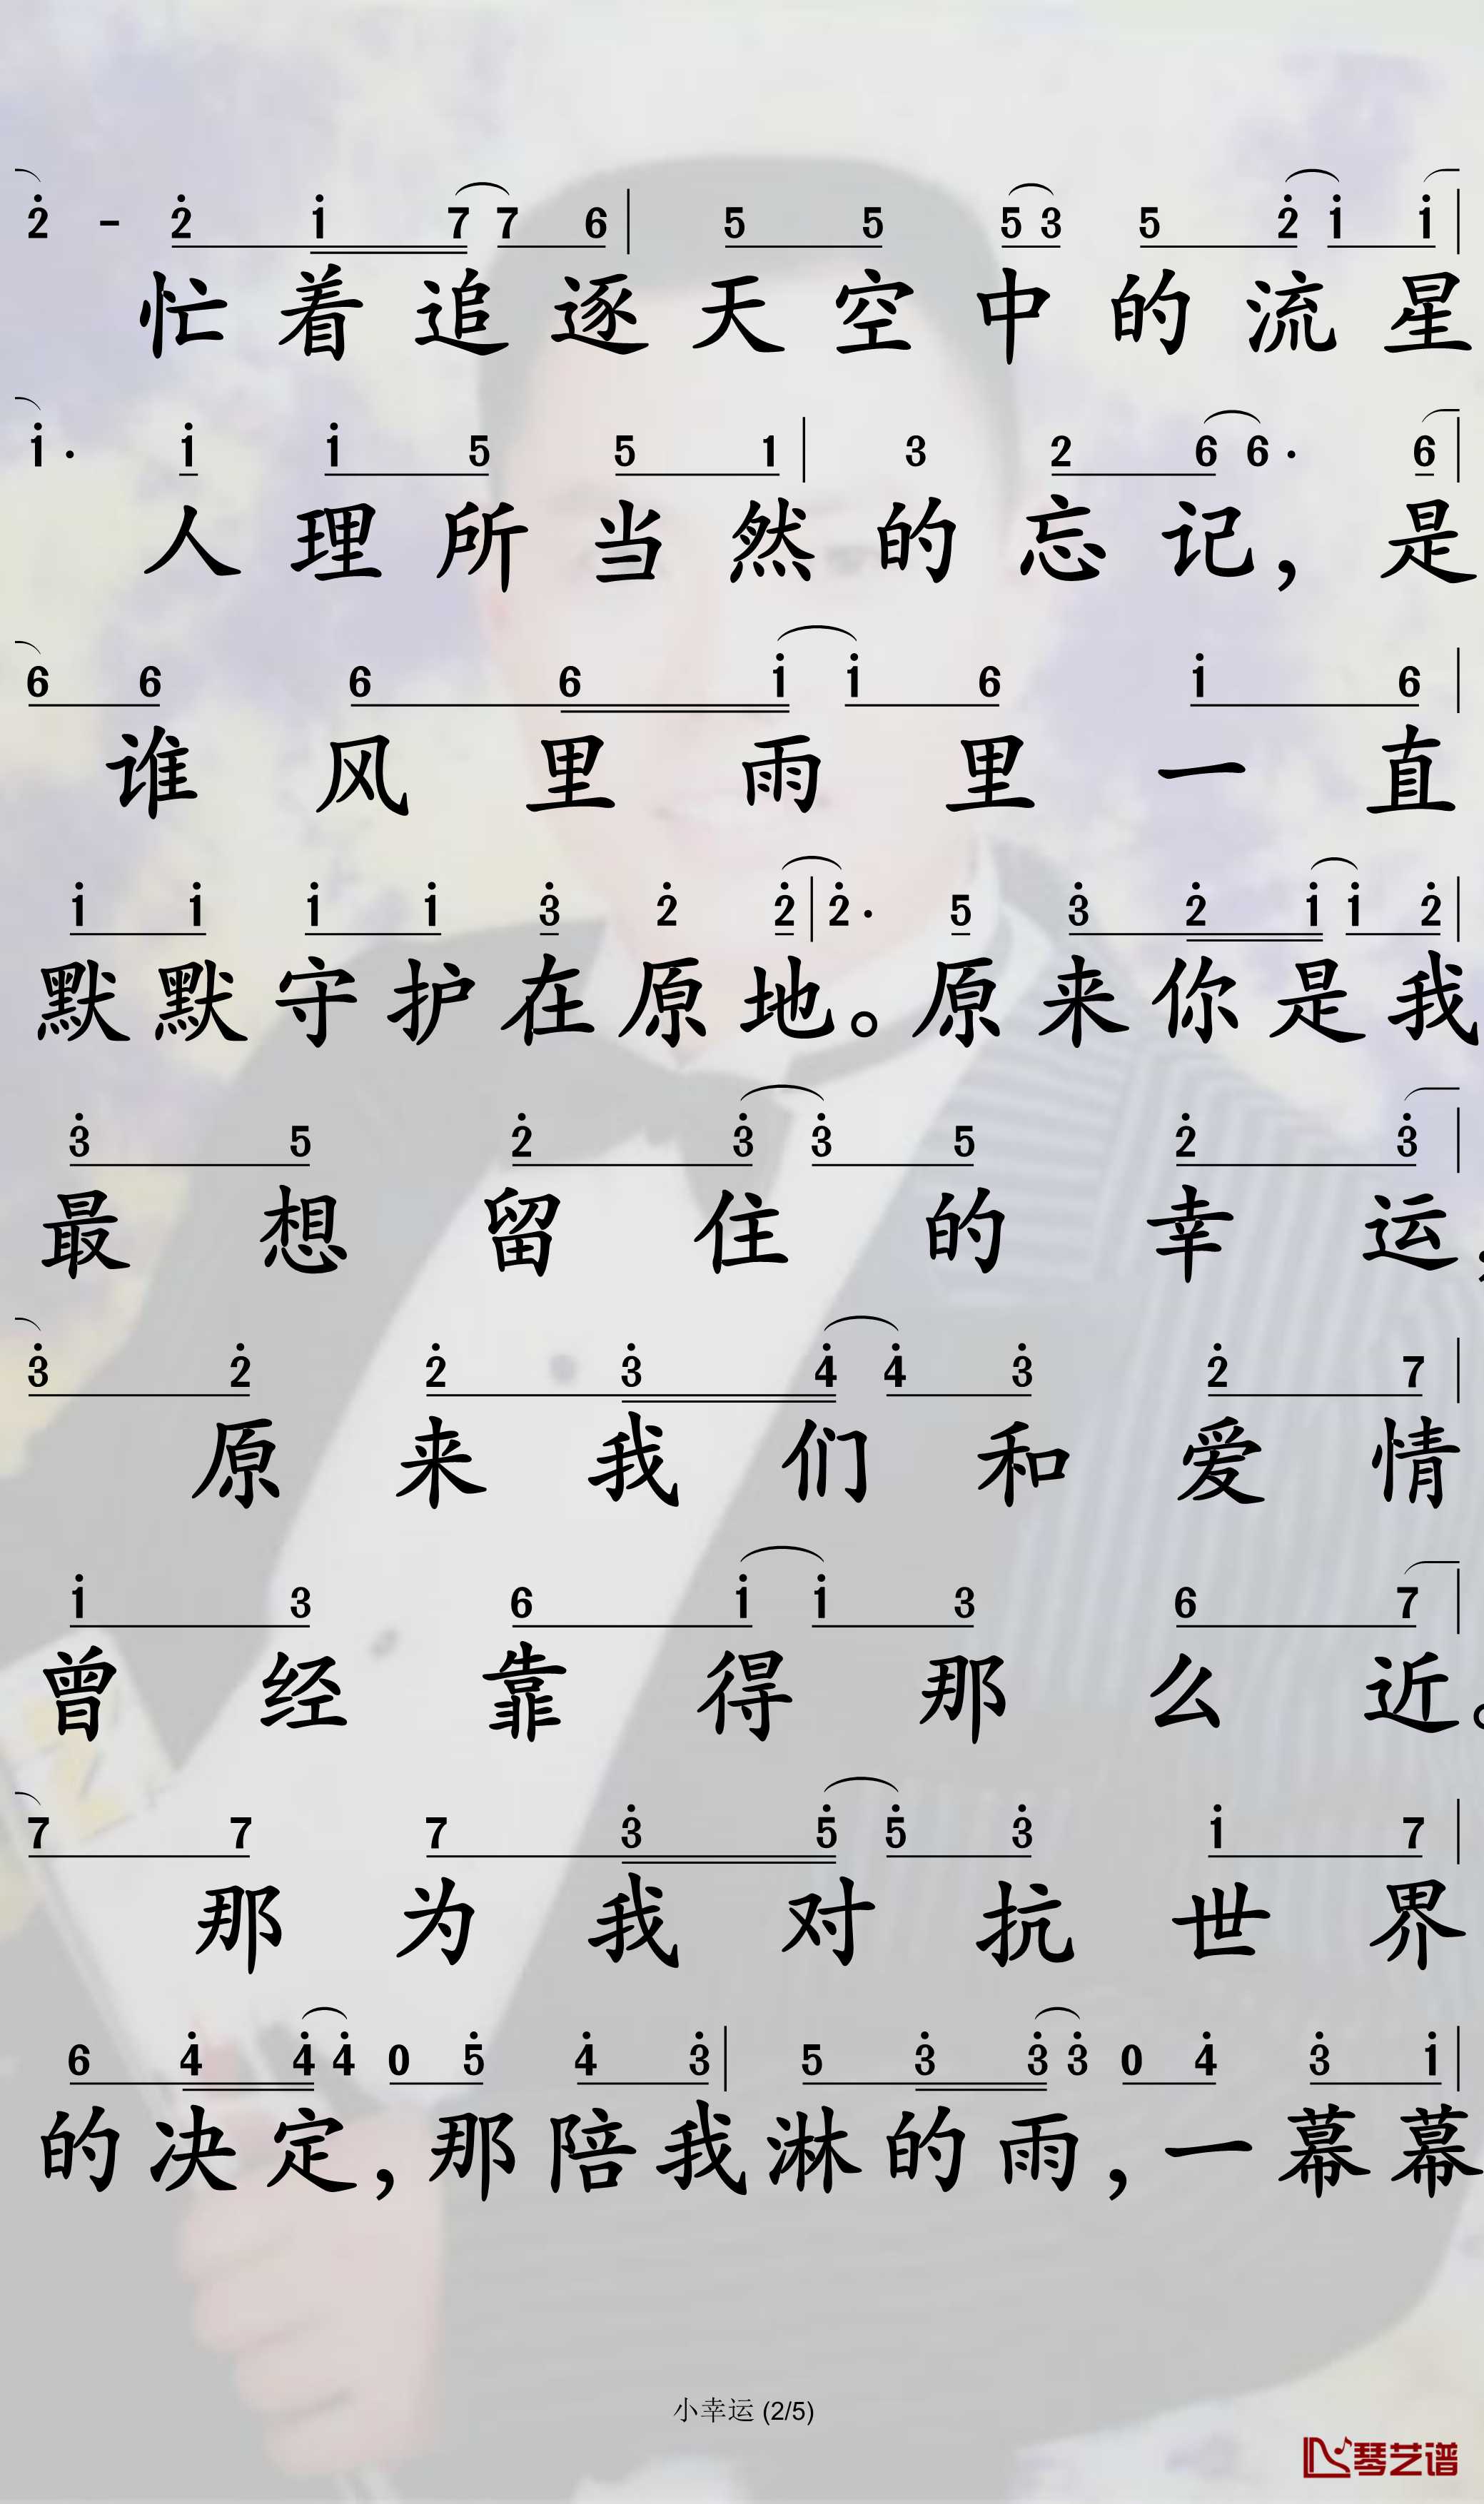 2̇ - 2̇ 1̇ 7 7 6 | 5 5 5 3 5 2̇ 1̇ 1̇ |
忙着追逐天空中的流星
1̇· 1̇ 1̇ 5 5 1 | 3 2 6 6· 6 |
人理所当然的忘记，是
6 6 6 6 1̇ 1̇ 6 1̇ 6 |
谁风里雨里一直
1̇ 1̇ 1̇ 1̇ 3̇ 2̇ 2̇ | 2̇· 5 3̇ 2̇ 1̇ 1̇ 2̇ |
默默守护在原地。原来你是我
3̇ 5 2̇ 3̇ 3̇ 5 2̇ 3̇ |
最想留住的幸运，
3̇ 2̇ 2̇ 3̇ 4̇ 4̇ 3̇ 2̇ 7 |
原来我们和爱情
1̇ 3 6 1̇ 1̇ 3 6 7 |
曾经靠得那么近。
7 7 7 3̇ 5̇ 5̇ 3̇ 1̇ 7 |
那为我对抗世界
6 4̇ 4̇ 4̇ 0 5̇ 4̇ 3̇ | 5 3̇ 3̇ 3̇ 0 4̇ 3̇ 1̇ |
的决定，那陪我淋的雨，一幕幕
小幸运 (2/5)
琴艺谱